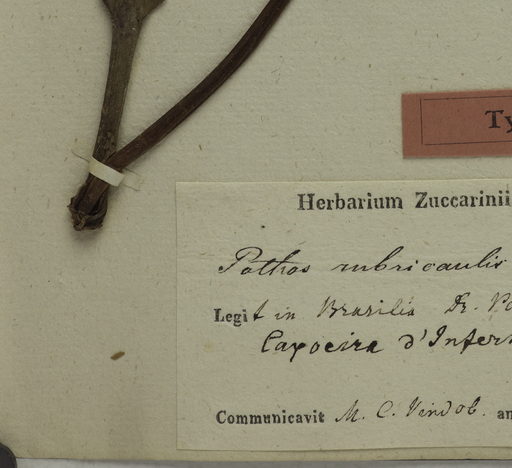 Ty
Herbarium Zuccarinii
Pothos rubricaulis
Legit in Brasilia Dr. Po
Capoeira d'Infern
Communicavit M. C. Vindob. an